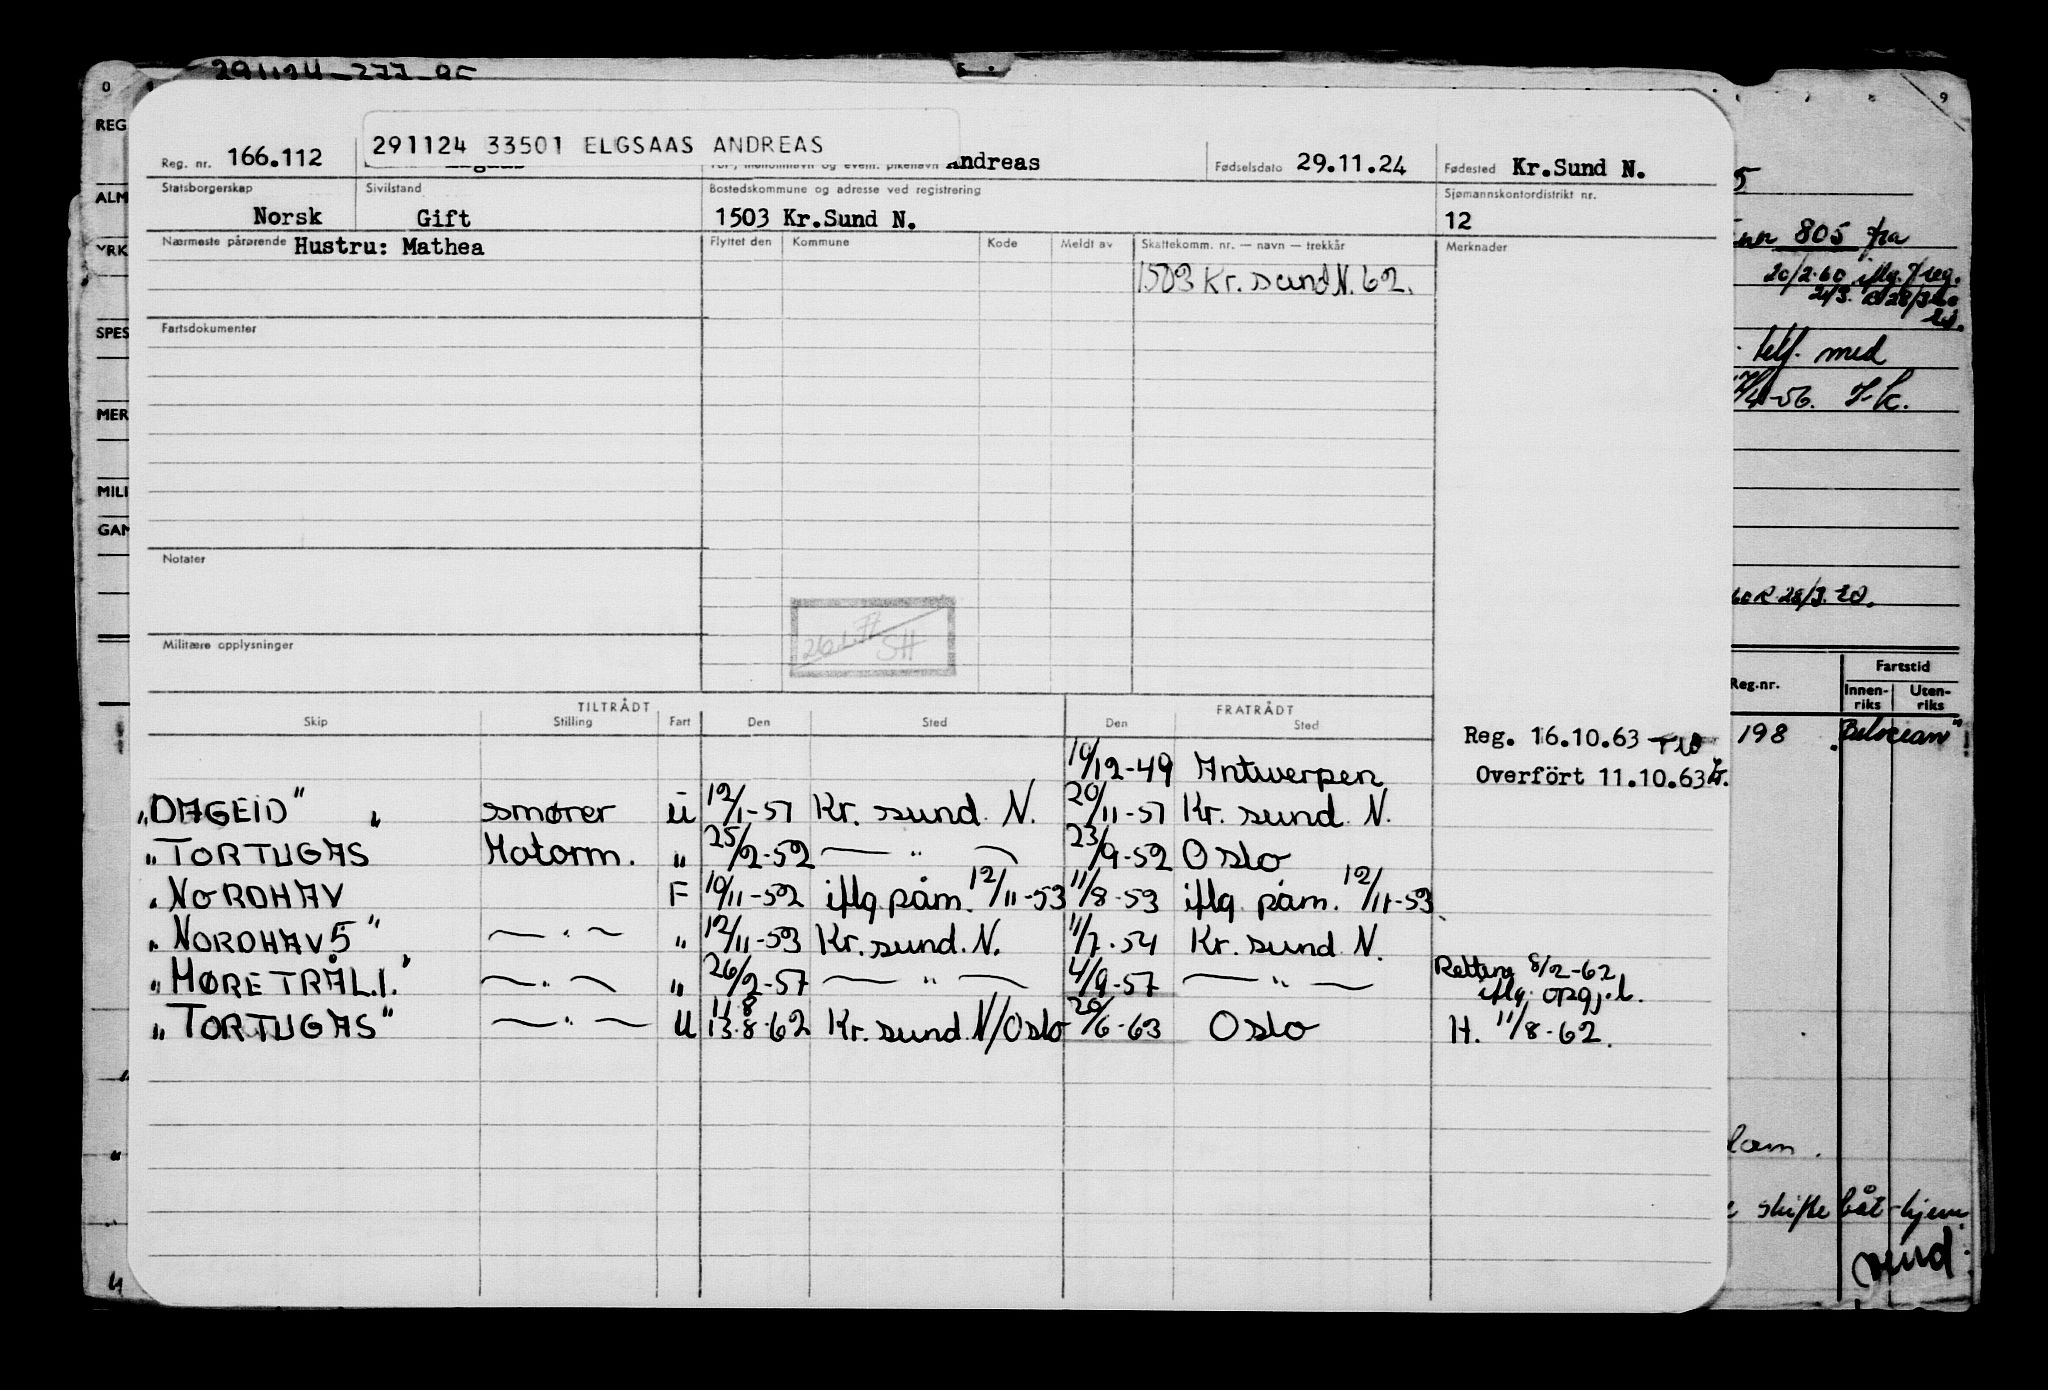 291124-277-95
291124 33501 ELGSAAS ANDREAS
Reg. nr. 166.112 Andreas Fødselsdato 29.11.24 Fødested Kr.Sund N.
Statsborgerskap Sivilstand Bostedskommune og adresse ved registrering Sjømannskontordistrikt nr.
Norsk Gift 1503 Kr.Sund N. 12
Nærmeste pårørende Hustru: Mathea Flyttet den Kommune Kode Meldt av Skattekomm. nr. — navn — trekkår Merknader
1503 Kr. sund N. 62.
Fartsdokumenter
Notater
SH
Militære opplysninger
TILTRÅDT FRATRÅDT
Skip Stilling Fart Den Sted Den Sted
Reg. 16.10.63
19/12-49 Antwerpen
Overfört 11.10.63
"DAGEID" " smører ü 12/1-51 Kr. sund N. 20/11-51 Kr. sund N.
"TORTUGAS Motorm. " 25/2-52 — " — 23/9-52 Oslo
"NORDHAV F 19/11-52 iflg. påm. 12/11-53 11/8-53 iflg. påm. 12/11-53.
"NORDHAV 5" — " — " 12/11-53 Kr. sund. N. 11/7-54 Kr. sund N.
"MØRETRÅL.I." — " — " 26/2-57 — " — 4/9-57 — " —
Retting 8/2-62
iflg. oppgj.b.
11.8
"TORTUGAS" — " — U 13.8.62 Kr. sund. N/Oslo 20/6-63 Oslo H. 11/8-62.
O
REG
ALM
YRK
SPES
MER
MILI
GAM
9
5
805 fra
20/2-60 iflg.
telf. med
28/3.
Reg.nr. Fartstid
Innen-
riks
Uten-
riks
198 Belocean"
skifte båt - hjem
sund